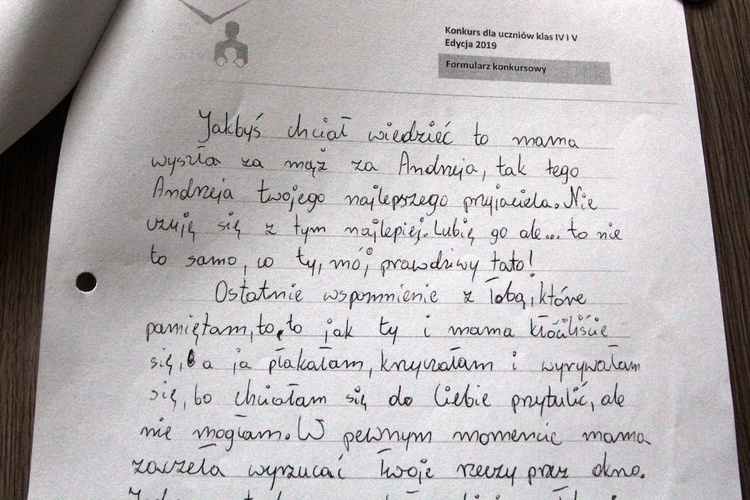 Konkurs dla uczniów klas IV i V
Edycja 2019
Formularz konkursowy
Jakbyś chciał wiedzieć to mama
wyszła za mąż za Andrzeja, tak tego
Andrzeja twojego najlepszego przyjaciela. Nie
czuję się z tym najlepiej. Lubię go ale... to nie
to samo, co ty, mój prawdziwy tato!
Ostatnie wspomnienie z Tobą, które
pamiętam, to, to jak ty i mama kłóciliście
się, a ja płakałam, krzyczałam i wyrywałam
się, bo chciałam się do Ciebie przytulić, ale
nie mogłam. W pewnym momencie mama
zaczęła wyrzucać Twoje rzeczy przez okno.